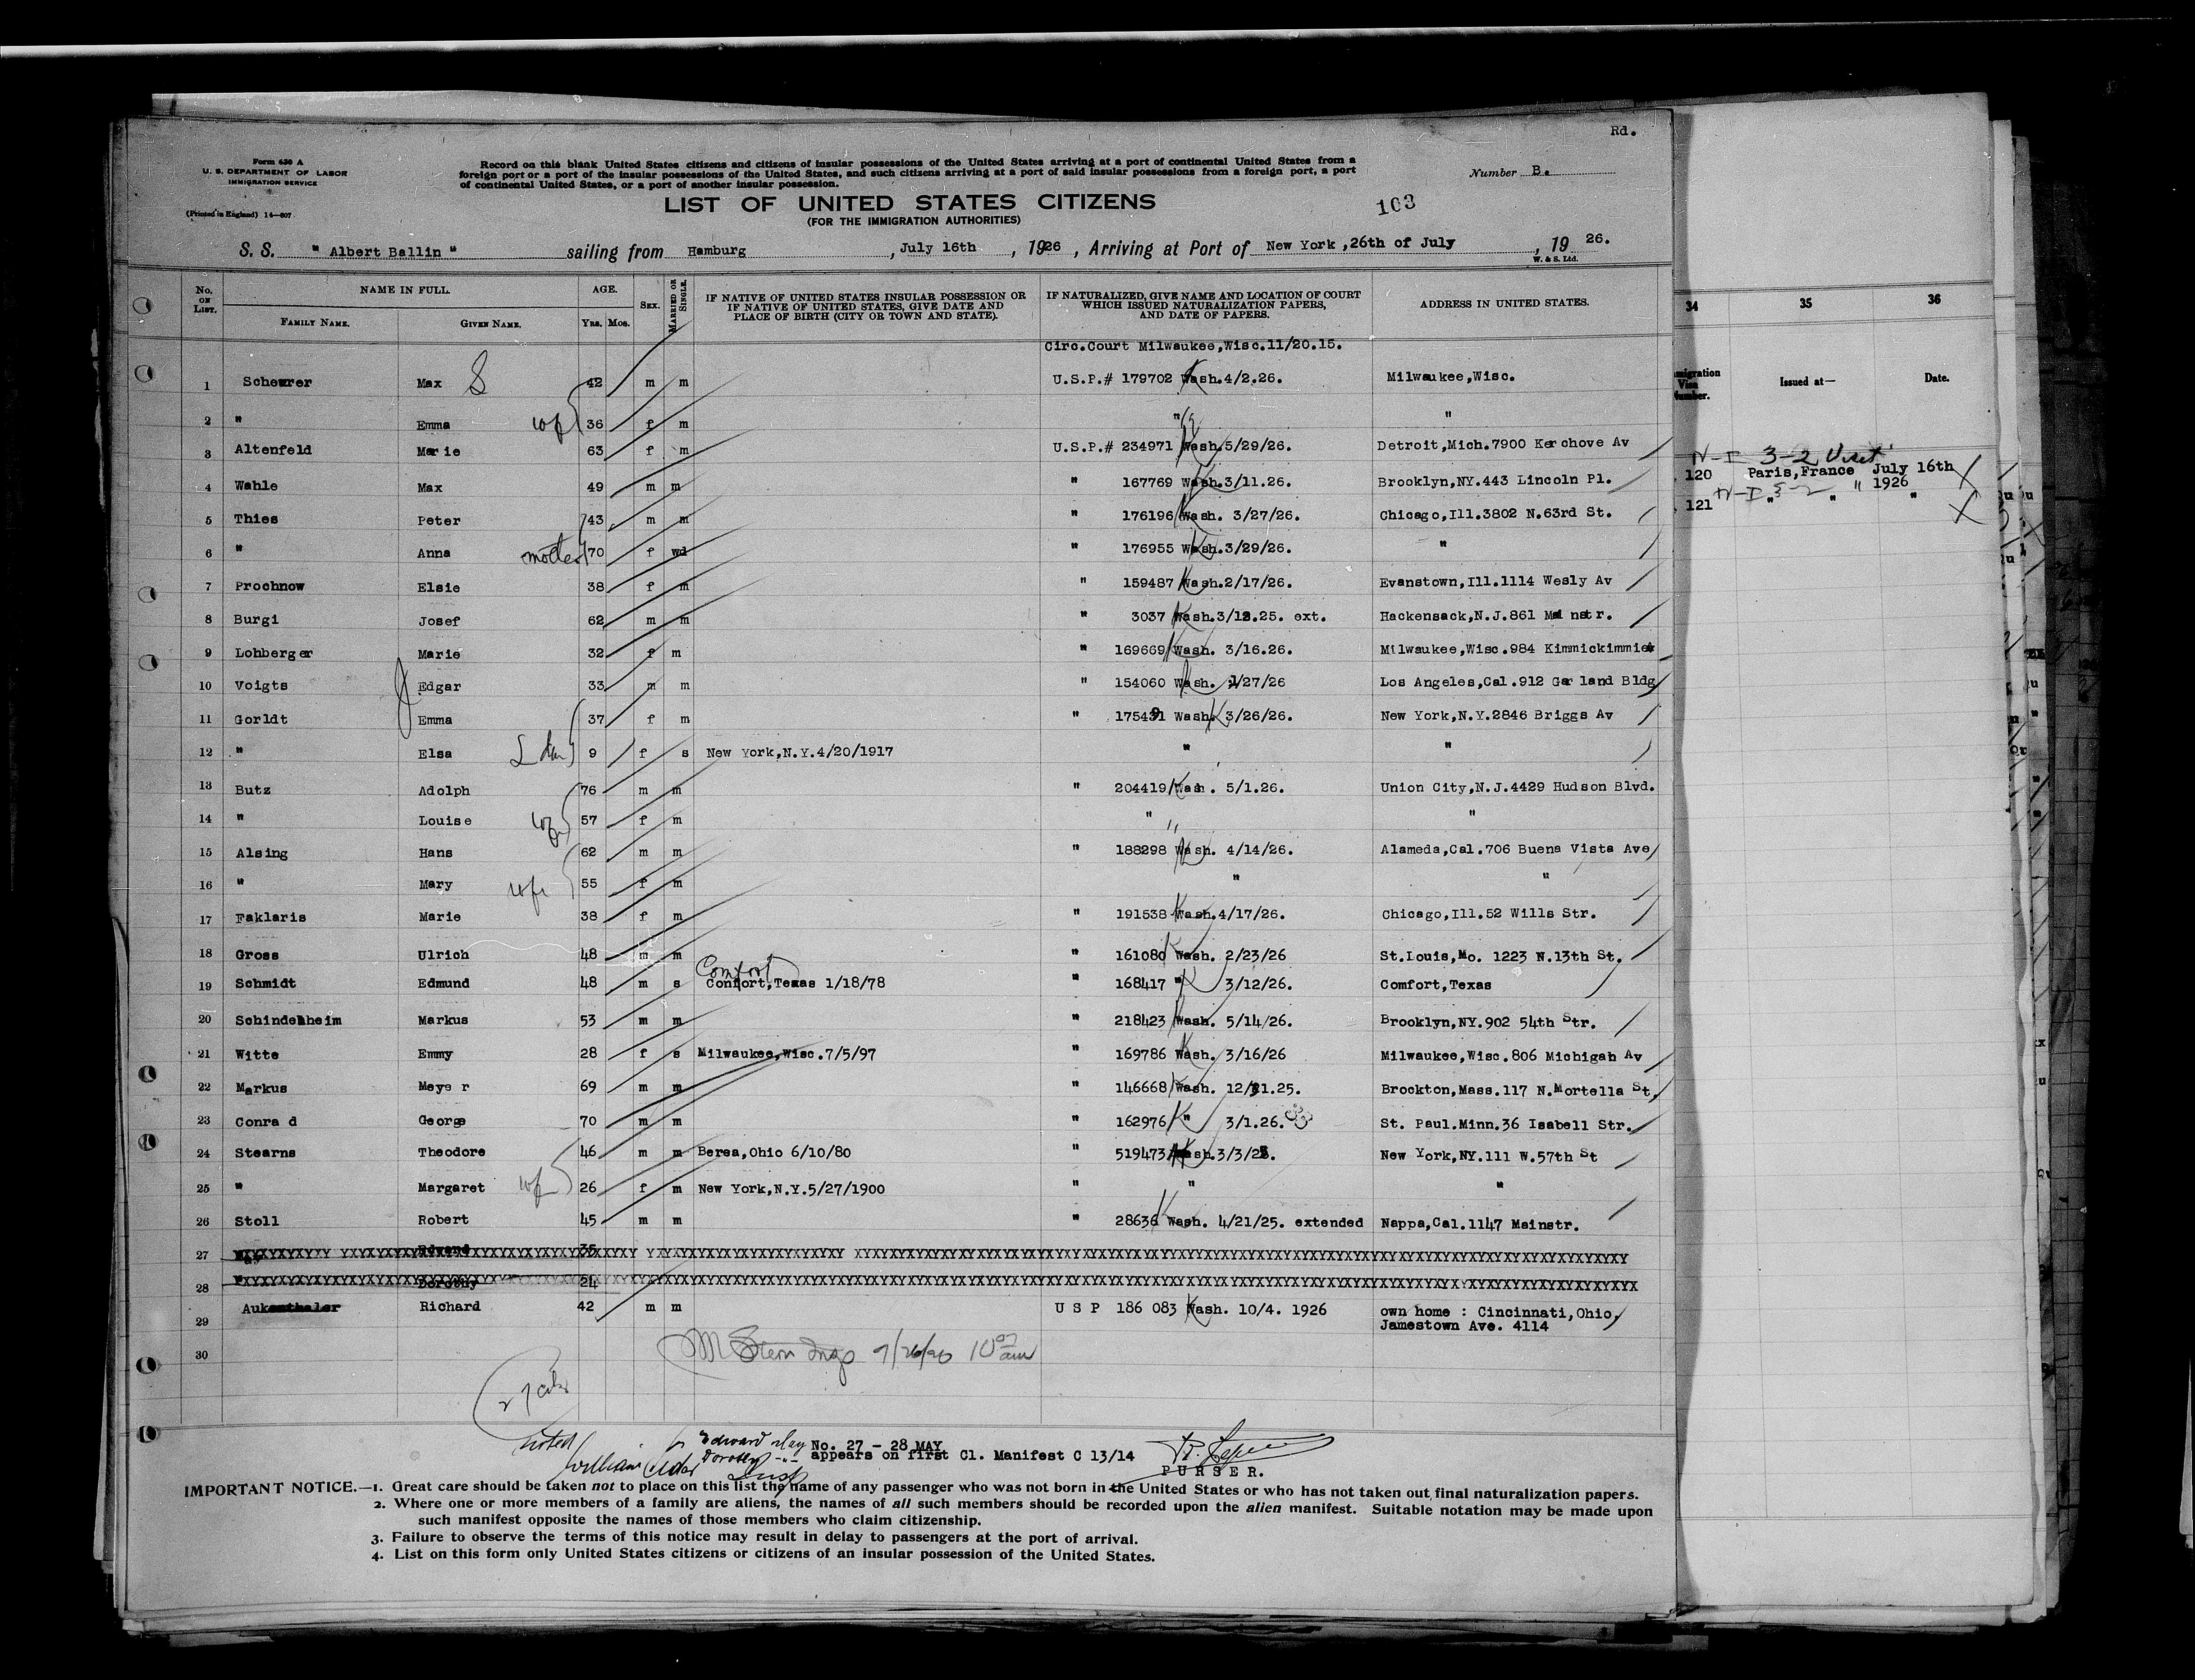 Rd.
Form 630 A
U. S. DEPARTMENT OF LABOR
IMMIGRATION SERVICE
(Printed in England) 14—807
Record on this blank United States citizens and citizens of insular possessions of the United States arriving at a port of continental United States from a
foreign port or a port of the insular possessions of the United States, and such citizens arriving at a port of said insular possessions from a foreign port, a port
of continental United States, or a port of another insular possession.
Number B.
LIST OF UNITED STATES CITIZENS
(FOR THE IMMIGRATION AUTHORITIES)
103
S. S. " Albert Ballin " sailing from Hamburg , July 16th , 1926 , Arriving at Port of New York ,26th of July , 19 26.
W. & S. Ltd.
No. ON LIST. NAME IN FULL. FAMILY NAME. GIVEN NAME. AGE. YRS. MOS. SEX. MARRIED OR SINGLE. IF NATIVE OF UNITED STATES INSULAR POSSESSION OR IF NATIVE OF UNITED STATES, GIVE DATE AND PLACE OF BIRTH (CITY OR TOWN AND STATE). IF NATURALIZED, GIVE NAME AND LOCATION OF COURT WHICH ISSUED NATURALIZATION PAPERS, AND DATE OF PAPERS. ADDRESS IN UNITED STATES.
Circ.Court Milwaukee,Wisc.11/20.15.
1 Scheurer Max 42 m m U.S.P.# 179702 Wash.4/2.26. Milwaukee,Wisc.
2 " Emma wf 36 f m " "
3 Altenfeld Marie 63 f m U.S.P.# 234971 Wash.5/29/26. Detroit,Mich.7900 Kerchove Av
4 Wahle Max 49 m m " 167769 Wash.3/11.26. Brooklyn,NY.443 Lincoln Pl.
5 Thies Peter 43 m m " 176196 Wash. 3/27/26. Chicago,Ill.3802 N.63rd St.
6 " Anna mother 70 f wd " 176955 Wash.3/29/26. "
7 Prochnow Elsie 38 f m " 159487 Wash.2/17/26. Evanstown,Ill.1114 Wesly Av
8 Burgi Josef 62 m m " 3037 Wash.3/12.25. ext. Hackensack,N.J.861 Mainstr.
9 Lohberger Marie 32 f m " 169669 Wash. 3/16.26. Milwaukee,Wisc.984 Kimmickimmie
10 Voigts Edgar 33 m m " 154060 Wash. 1/27/26 Los Angeles,Cal.912 Garland Bldg
11 Gorldt Emma 37 f m " Wash. 3/26/26. New York,N.Y.2846 Briggs Av
12 " Elsa 9 f s New York,N.Y.4/20/1917 " "
13 Butz Adolph 76 m m " 204419 Wash. 5/1.26. Union City,N.J.4429 Hudson Blvd.
14 " Louise wf 57 f m " "
15 Alsing Hans 62 m m " 188298 Wash. 4/14/26. Alameda,Cal.706 Buena Vista Ave
16 " Mary wf 55 f m " "
17 Faklaris Marie 38 f m " 191538 Wash.4/17/26. Chicago,Ill.52 Wills Str.
18 Gross Ulrich 48 m m " 161080 Wash. 2/23/26 St.Louis,Mo. 1223 N.13th St.
Comfort
19 Schmidt Edmund 48 m s Confort,Texas 1/18/78 " 168417 " 3/12/26. Comfort,Texas
20 Schindelheim Markus 53 m m " 218423 Wash. 5/14/26. Brooklyn,NY.902 54th Str.
21 Witte Emmy 28 f s Milwaukee,Wisc.7/5/97 " 169786 Wash. 3/16/26 Milwaukee,Wisc.806 Michigan Av
22 Markus Meyer 69 m m " 146668 Wash. 12/31.25. Brockton,Mass.117 N.Mortella St.
23 Conrad George 70 m m " 162976 " 3/1.26. St. Paul.Minn.36 Isabell Str.
24 Stearns Theodore 46 m m Berea,Ohio 6/10/80 " 519473 Wash.3/3/25. New York,NY.111 W.57th St
25 " Margaret wf 26 f m New York,N.Y.5/27/1900 " " "
26 Stoll Robert 45 m m " 28636 Wash. 4/21/25. extended Nappa,Cal.1147 Mainstr.
27 May Edward 35
28 " Dorothy 24
29 Aukenthaler Richard 42 m m U S P 186 083 Wash. 10/4. 1926 own home : Cincinnati,Ohio,
Jamestown Ave. 4114
30
M Stern Insp 7/26/26 10 am
noted
Edward May No. 27 - 28 MAY
Dorothy -"- appears on first Cl. Manifest C 13/14
William Insp
PURSER.
IMPORTANT NOTICE.—1. Great care should be taken not to place on this list the name of any passenger who was not born in the United States or who has not taken out final naturalization papers.
2. Where one or more members of a family are aliens, the names of all such members should be recorded upon the alien manifest. Suitable notation may be made upon
such manifest opposite the names of those members who claim citizenship.
3. Failure to observe the terms of this notice may result in delay to passengers at the port of arrival.
4. List on this form only United States citizens or citizens of an insular possession of the United States.
34 35 36
Visa Issued at— Date.
N-I 3-2 Visit
120 Paris,France July 16th
N-I 3-2 " 1926
121 " " "